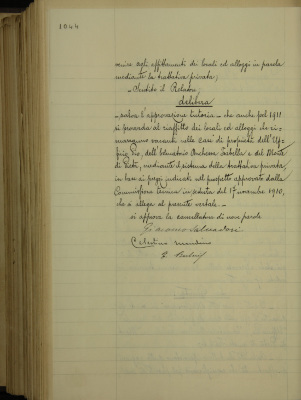 1044
nire agli affittamenti dei locali ed alloggi in parola
mediante la trattativa privata;
- Udito il Relatore;
delibera
- salva l'approvazione tutoria - che anche pel 1911
si proceda al riaffitto dei locali ed alloggi che ri-
marranno vacanti nelle case di proprietà dell'Uf-
ficio Pio, dell'Educatorio Duchessa Isabella e del Monte
di Pietà, mediante il sistema della trattativa privata
in base ai prezzi indicati nel prospetto approvato dalla
Commissione tecnica in seduta del 17 novembre 1910,
che si allega al presente verbale -
si approva la cancellatura di una parola
Giacomo Salvadori
Celestino